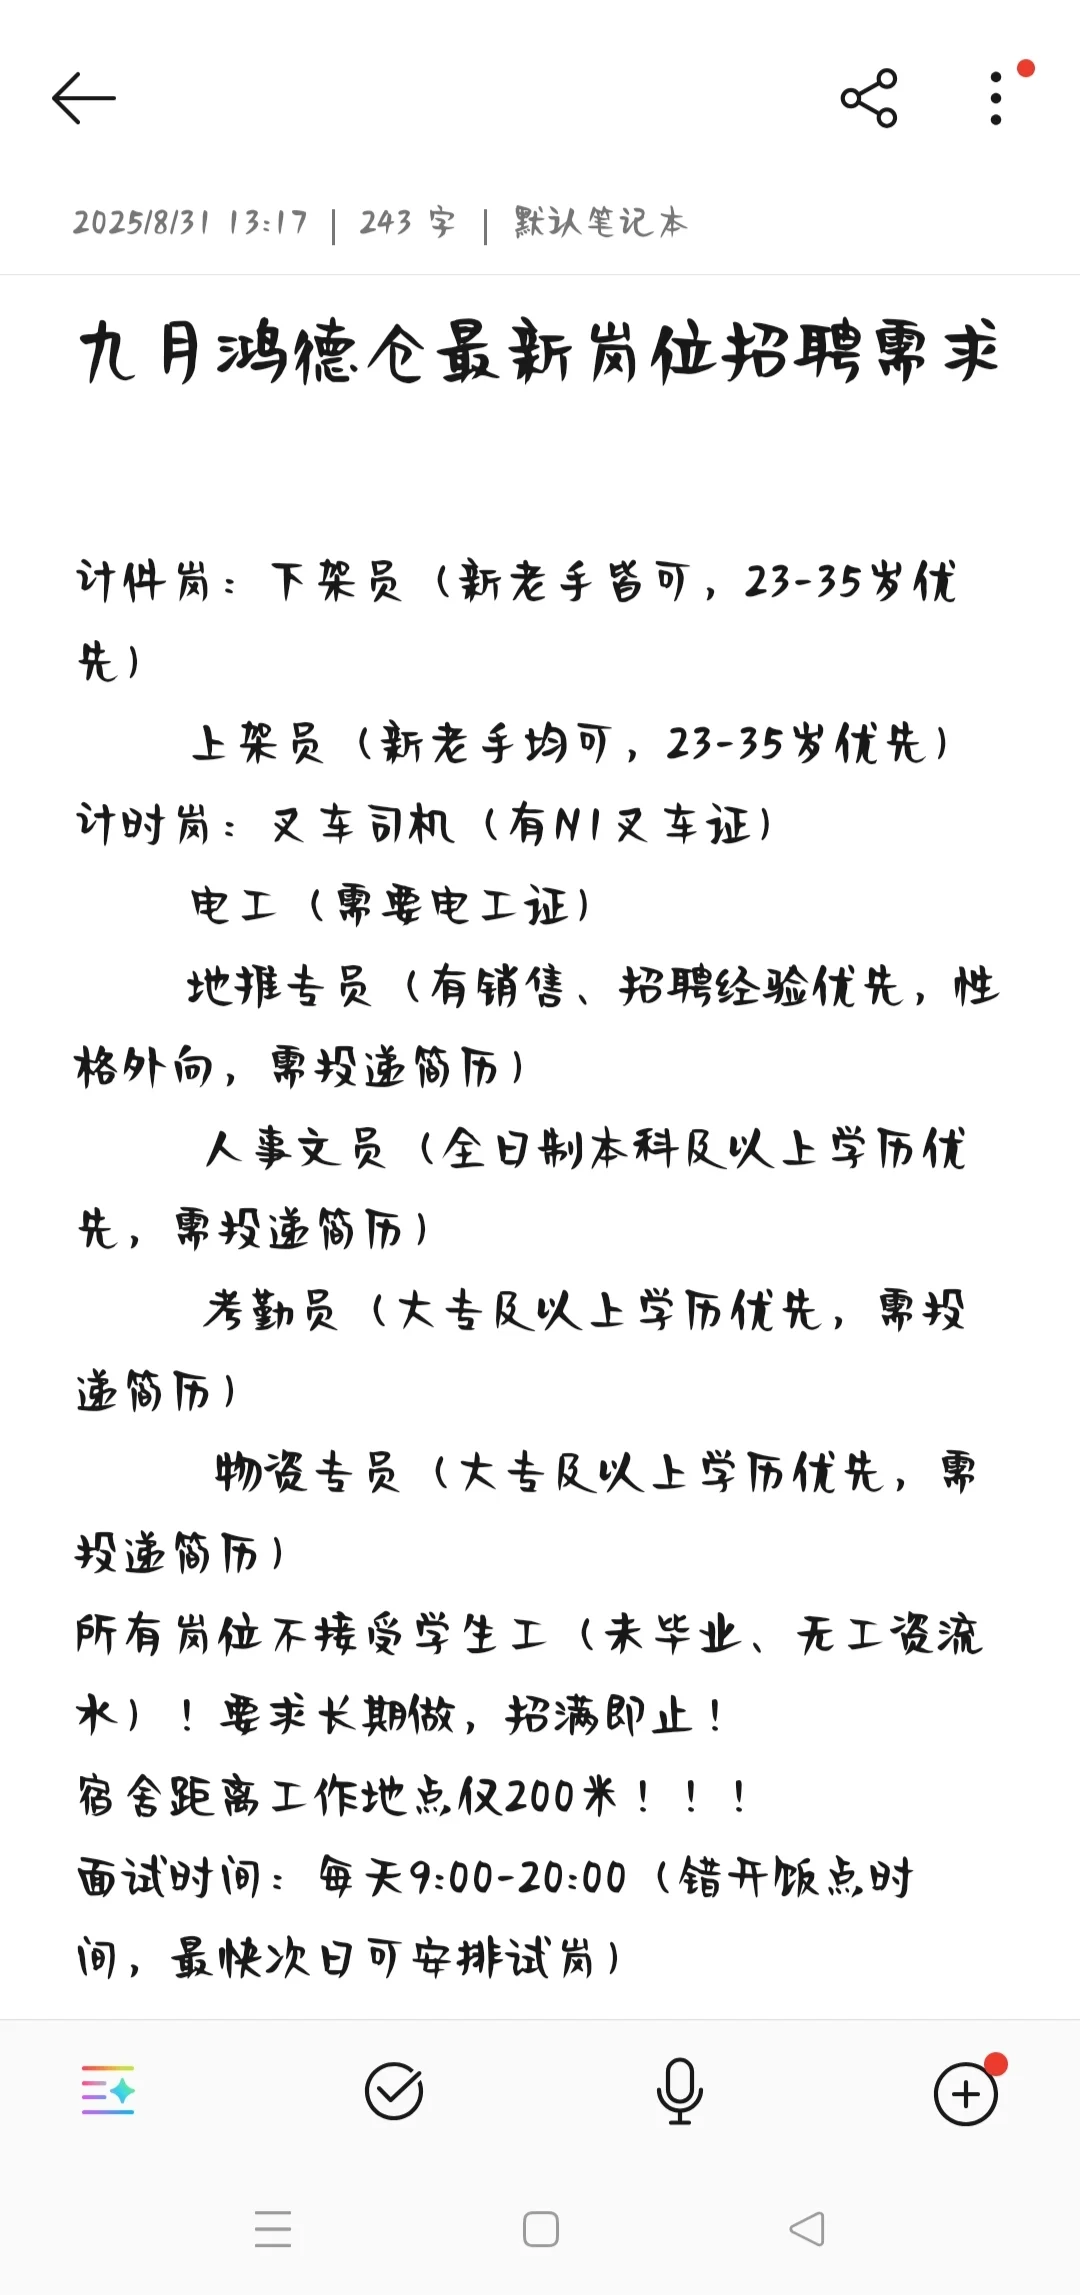 2025/8/31 13:17 | 243 字 | 默认笔记本
九月鸿德仓最新岗位招聘需求
计件岗：下架员（新老手皆可，23-35岁优
先）
上架员（新老手均可，23-35岁优先）
计时岗：叉车司机（有N1叉车证）
电工（需要电工证）
地推专员（有销售、招聘经验优先，性
格外向，需投递简历）
人事文员（全日制本科及以上学历优
先，需投递简历）
考勤员（大专及以上学历优先，需投
递简历）
物资专员（大专及以上学历优先，需
投递简历）
所有岗位不接受学生工（未毕业、无工资流
水）！要求长期做，招满即止！
宿舍距离工作地点仅200米！！！
面试时间：每天9:00-20:00（错开饭点时
间，最快次日可安排试岗）